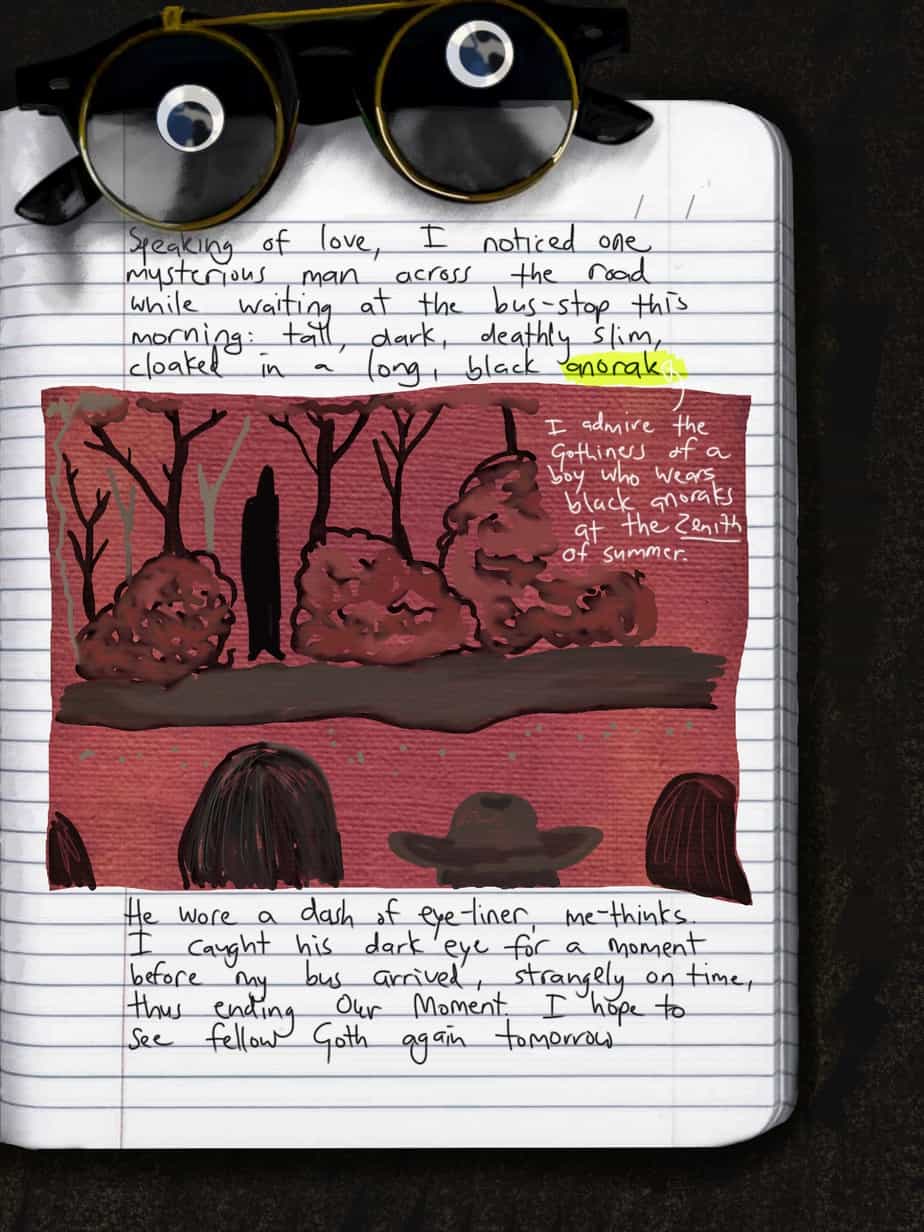 / /
Speaking of love, I noticed one
mysterious man across the road
while waiting at the bus-stop this
morning: tall, dark, deathly slim,
cloaked in a long, black anorak
I admire the
Gothiness of a
boy who wears
black anoraks
at the Zenith
of summer.
He wore a dash of eye-liner, me-thinks.
I caught his dark eye for a moment
before my bus arrived, strangely on time,
thus ending Our Moment. I hope to
see fellow Goth again tomorrow